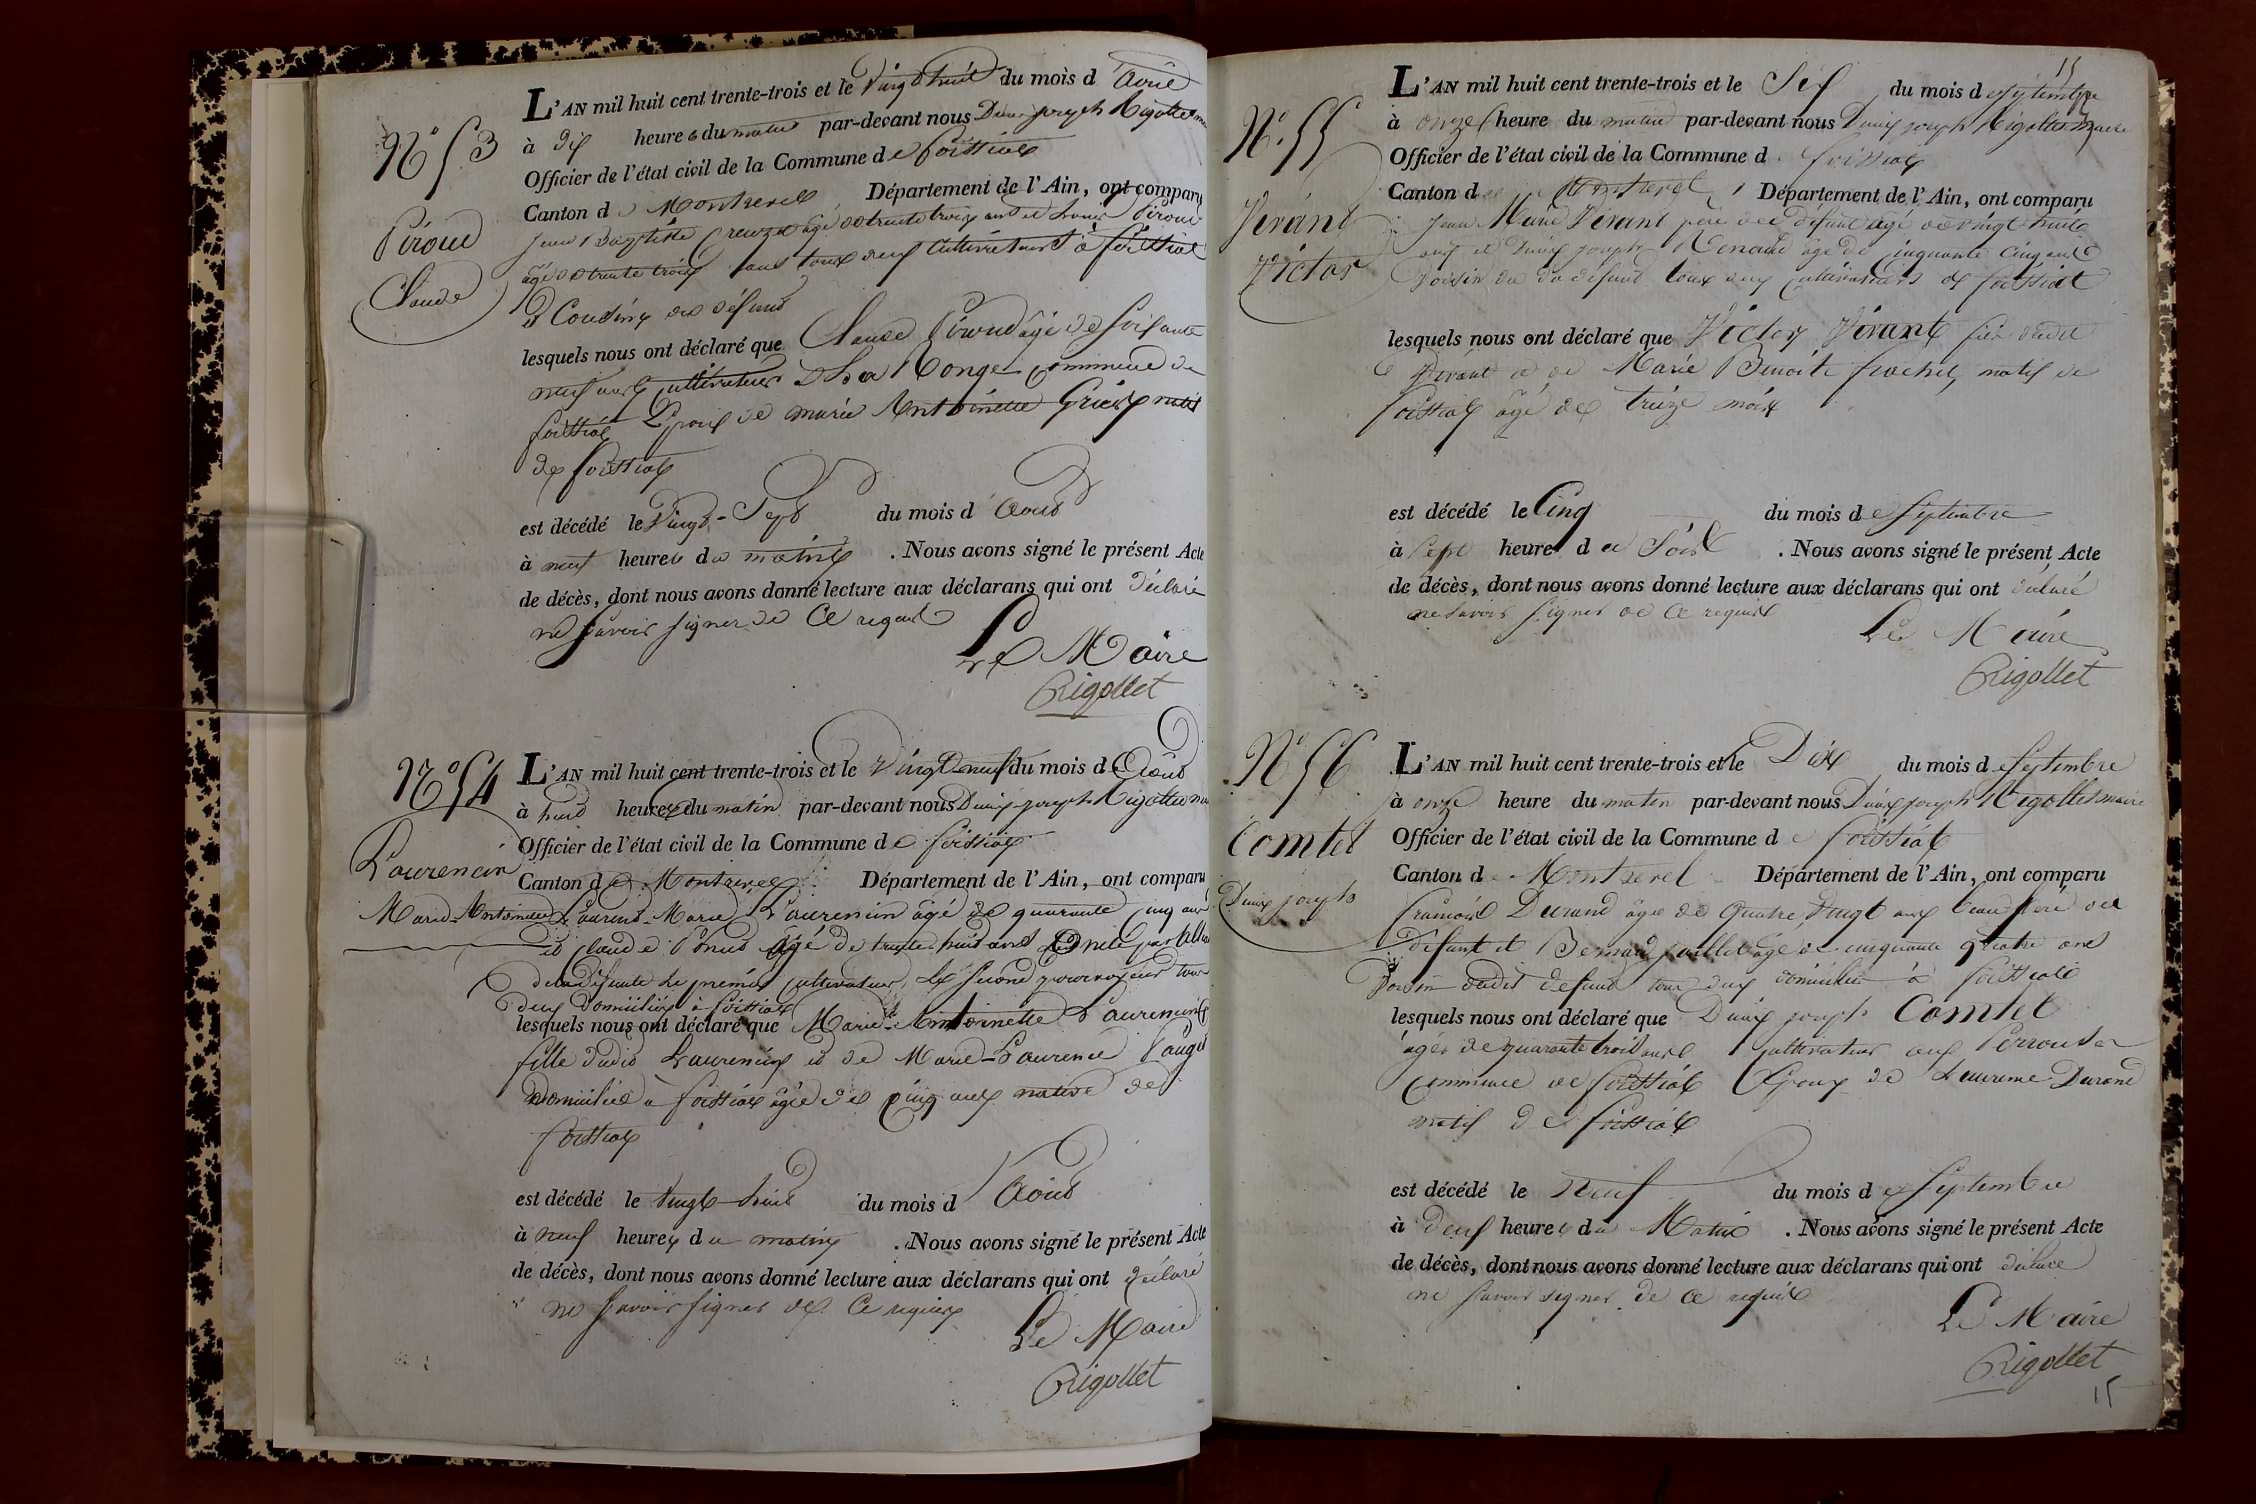 N° 53
Piroud
Claude
L'AN mil huit cent trente-trois et le Vingt huit du mois d'Août
à dix heures du matin par-devant nous Denis joseph Rigollet
Officier de l'état civil de la Commune de foissiat
Canton de Montrevel Département de l'Ain, ont comparu
jean Baptiste Creuze âgé de trente trois ans et Piroud
âgé de trente trois ans tous deux Cultivateurs à foissiat
Cousins du défunt
lesquels nous ont déclaré que Claude Piroud âgé de soixante
neuf ans cultivateur Commune de
foissiat Epoux de marie Antoinette natif
de foissiat
est décédé le Vingt-Sept du mois d'Août
à neuf heures du matin . Nous avons signé le présent Acte
de décès, dont nous avons donné lecture aux déclarans qui ont déclaré
ne savoir signer de Ce requis
Le Maire
Rigollet
N° 54
Laurencin
Marie-Antoinette
L'AN mil huit cent trente-trois et le Vingt neuf du mois d'Août
à huit heures du matin par-devant nous Denis joseph Rigollet
Officier de l'état civil de la Commune de foissiat
Canton de Montrevel Département de l'Ain, ont comparu
Laurent-Marie Laurencin âgé de quarante cinq ans
et claude âgé de trente huit ans
de la défunte le premier cultivateur, le second tous
deux domiciliés à foissiat
lesquels nous ont déclaré que Marie-Antoinette Laurencin
fille dudit Laurencin et de Marie-Laurence
domiciliée à foissiat âgée de cinq ans native de
foissiat
est décédé le Vingt huit du mois d'Août
à neuf heures du matin . Nous avons signé le présent Acte
de décès, dont nous avons donné lecture aux déclarans qui ont déclaré
ne savoir signer de Ce requis
Le Maire
Rigollet
15
N° 55
Verant
Victor
L'AN mil huit cent trente-trois et le Six du mois de septembre
à onze heure du matin par-devant nous Denis joseph Rigollet maire
Officier de l'état civil de la Commune de foissiat
Canton de Montrevel Département de l'Ain, ont comparu
jean Marie Verant père du défunt âgé de vingt huit
ans et Denis joseph Renaud âgé de cinquante cinq ans
voisin du dit défunt tous deux cultivateurs à foissiat
lesquels nous ont déclaré que Victor Verant fils dudit
Verant et de Marie Benoite natif de
foissiat âgé de treize mois
est décédé le Cinq du mois de Septembre
à sept heure du Soir . Nous avons signé le présent Acte
de décès, dont nous avons donné lecture aux déclarans qui ont déclaré
ne savoir signer de Ce requis
Le Maire
Rigollet
N° 56
Comtet
Denis joseph
L'AN mil huit cent trente-trois et le Dix du mois de Septembre
à onze heure du matin par-devant nous Denis joseph Rigollet maire
Officier de l'état civil de la Commune de foissiat
Canton de Montrevel Département de l'Ain, ont comparu
françois Durand âgé de Quatre Vingt ans beau père du
défunt et Bernard âgé de cinquante quatre ans
voisin dudit défunt tous deux domiciliés à foissiat
lesquels nous ont déclaré que Denis joseph Comtet
âgé de quarante trois ans cultivateur aux
Commune de foissiat Epoux de Laurence Durand
natif de foissiat
est décédé le neuf du mois de Septembre
à deux heures du Matin . Nous avons signé le présent Acte
de décès, dont nous avons donné lecture aux déclarans qui ont déclaré
ne savoir signer de Ce requis
Le Maire
Rigollet
15